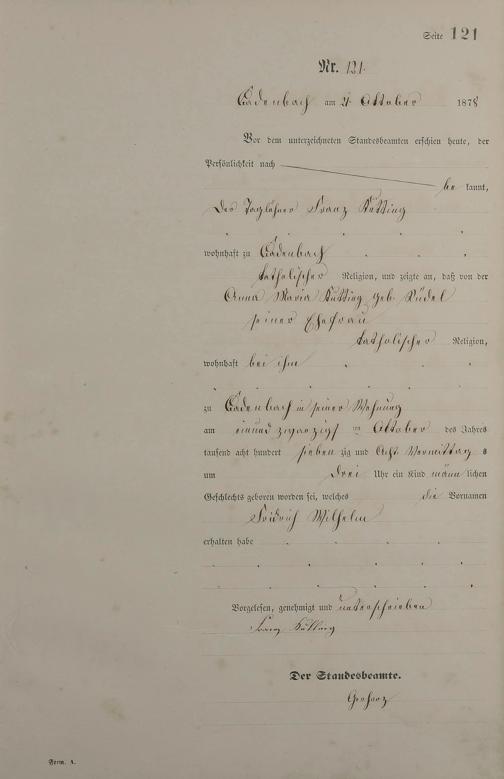 Seite 121
Nr. 121.
Cadenbach am 21 Oktober 1878
Vor dem unterzeichneten Standesbeamten erschien heute, der
Persönlichkeit nach
be kannt,
Der Taglöhner Franz Kütting
wohnhaft zu Cadenbach
katholischer Religion, und zeigte an, daß von der
Anna Maria Kütting geb. Rüdel
seiner Ehefrau
katholischer Religion,
wohnhaft bei ihm
zu Cadenbach in seiner Wohnung
am einund zwanzigst en Oktober des Jahres
tausend acht hundert sieben zig und Acht Vormittag s
um drei Uhr ein Kind männ lichen
Geschlechts geboren worden sei, welches die Vornamen
Fridrich Wilhelm
erhalten habe
Vorgelesen, genehmigt und unterschrieben
Franz Kütting
Der Standesbeamte.
Form. A.